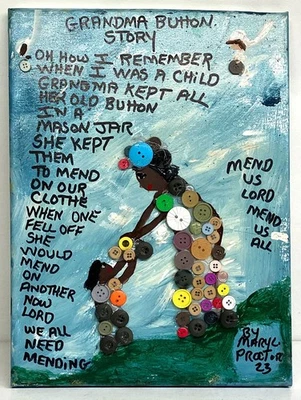 GRANDMA BUHON.
STORY
OH HOW I REMEMBER
WHEN I WAS A CHILD
GRANGMA KEPT ALL
HER OLD BUHON
IN A
MASON JAR
SHE KEPT
THEM
TO MEND
ON OUR
CLOTHE
WHEN ONE
FELL OFF
SHE
WOULD
MEND
ON
ANOTHER
NOW
LORD
WE ALL
NEED
MENDING
MEND
US
LORD
MEND
US
ALL
BY
MARYL
PROCTOR
23